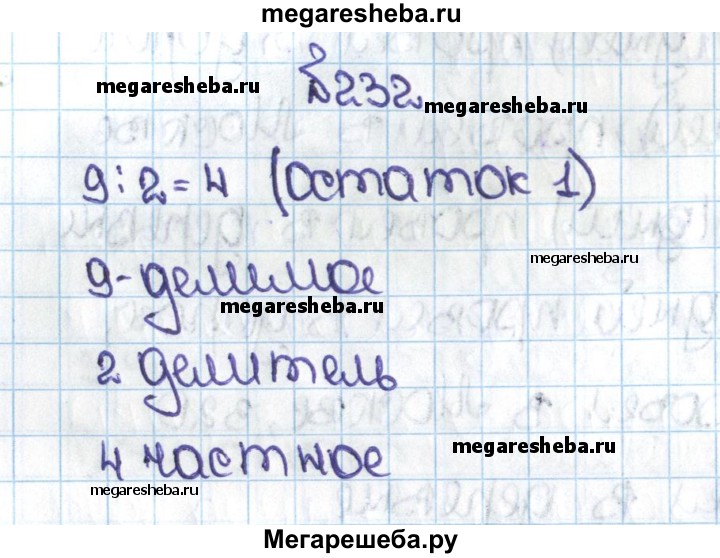 megaresheba.ru
megaresheba.ru
№232
megaresheba.ru
9:2=4 (остаток 1)
megaresheba.ru
9-делимое
megaresheba.ru
2 делитель
4 частное
megaresheba.ru
megaresheba.ru
Мегарешеба.ру